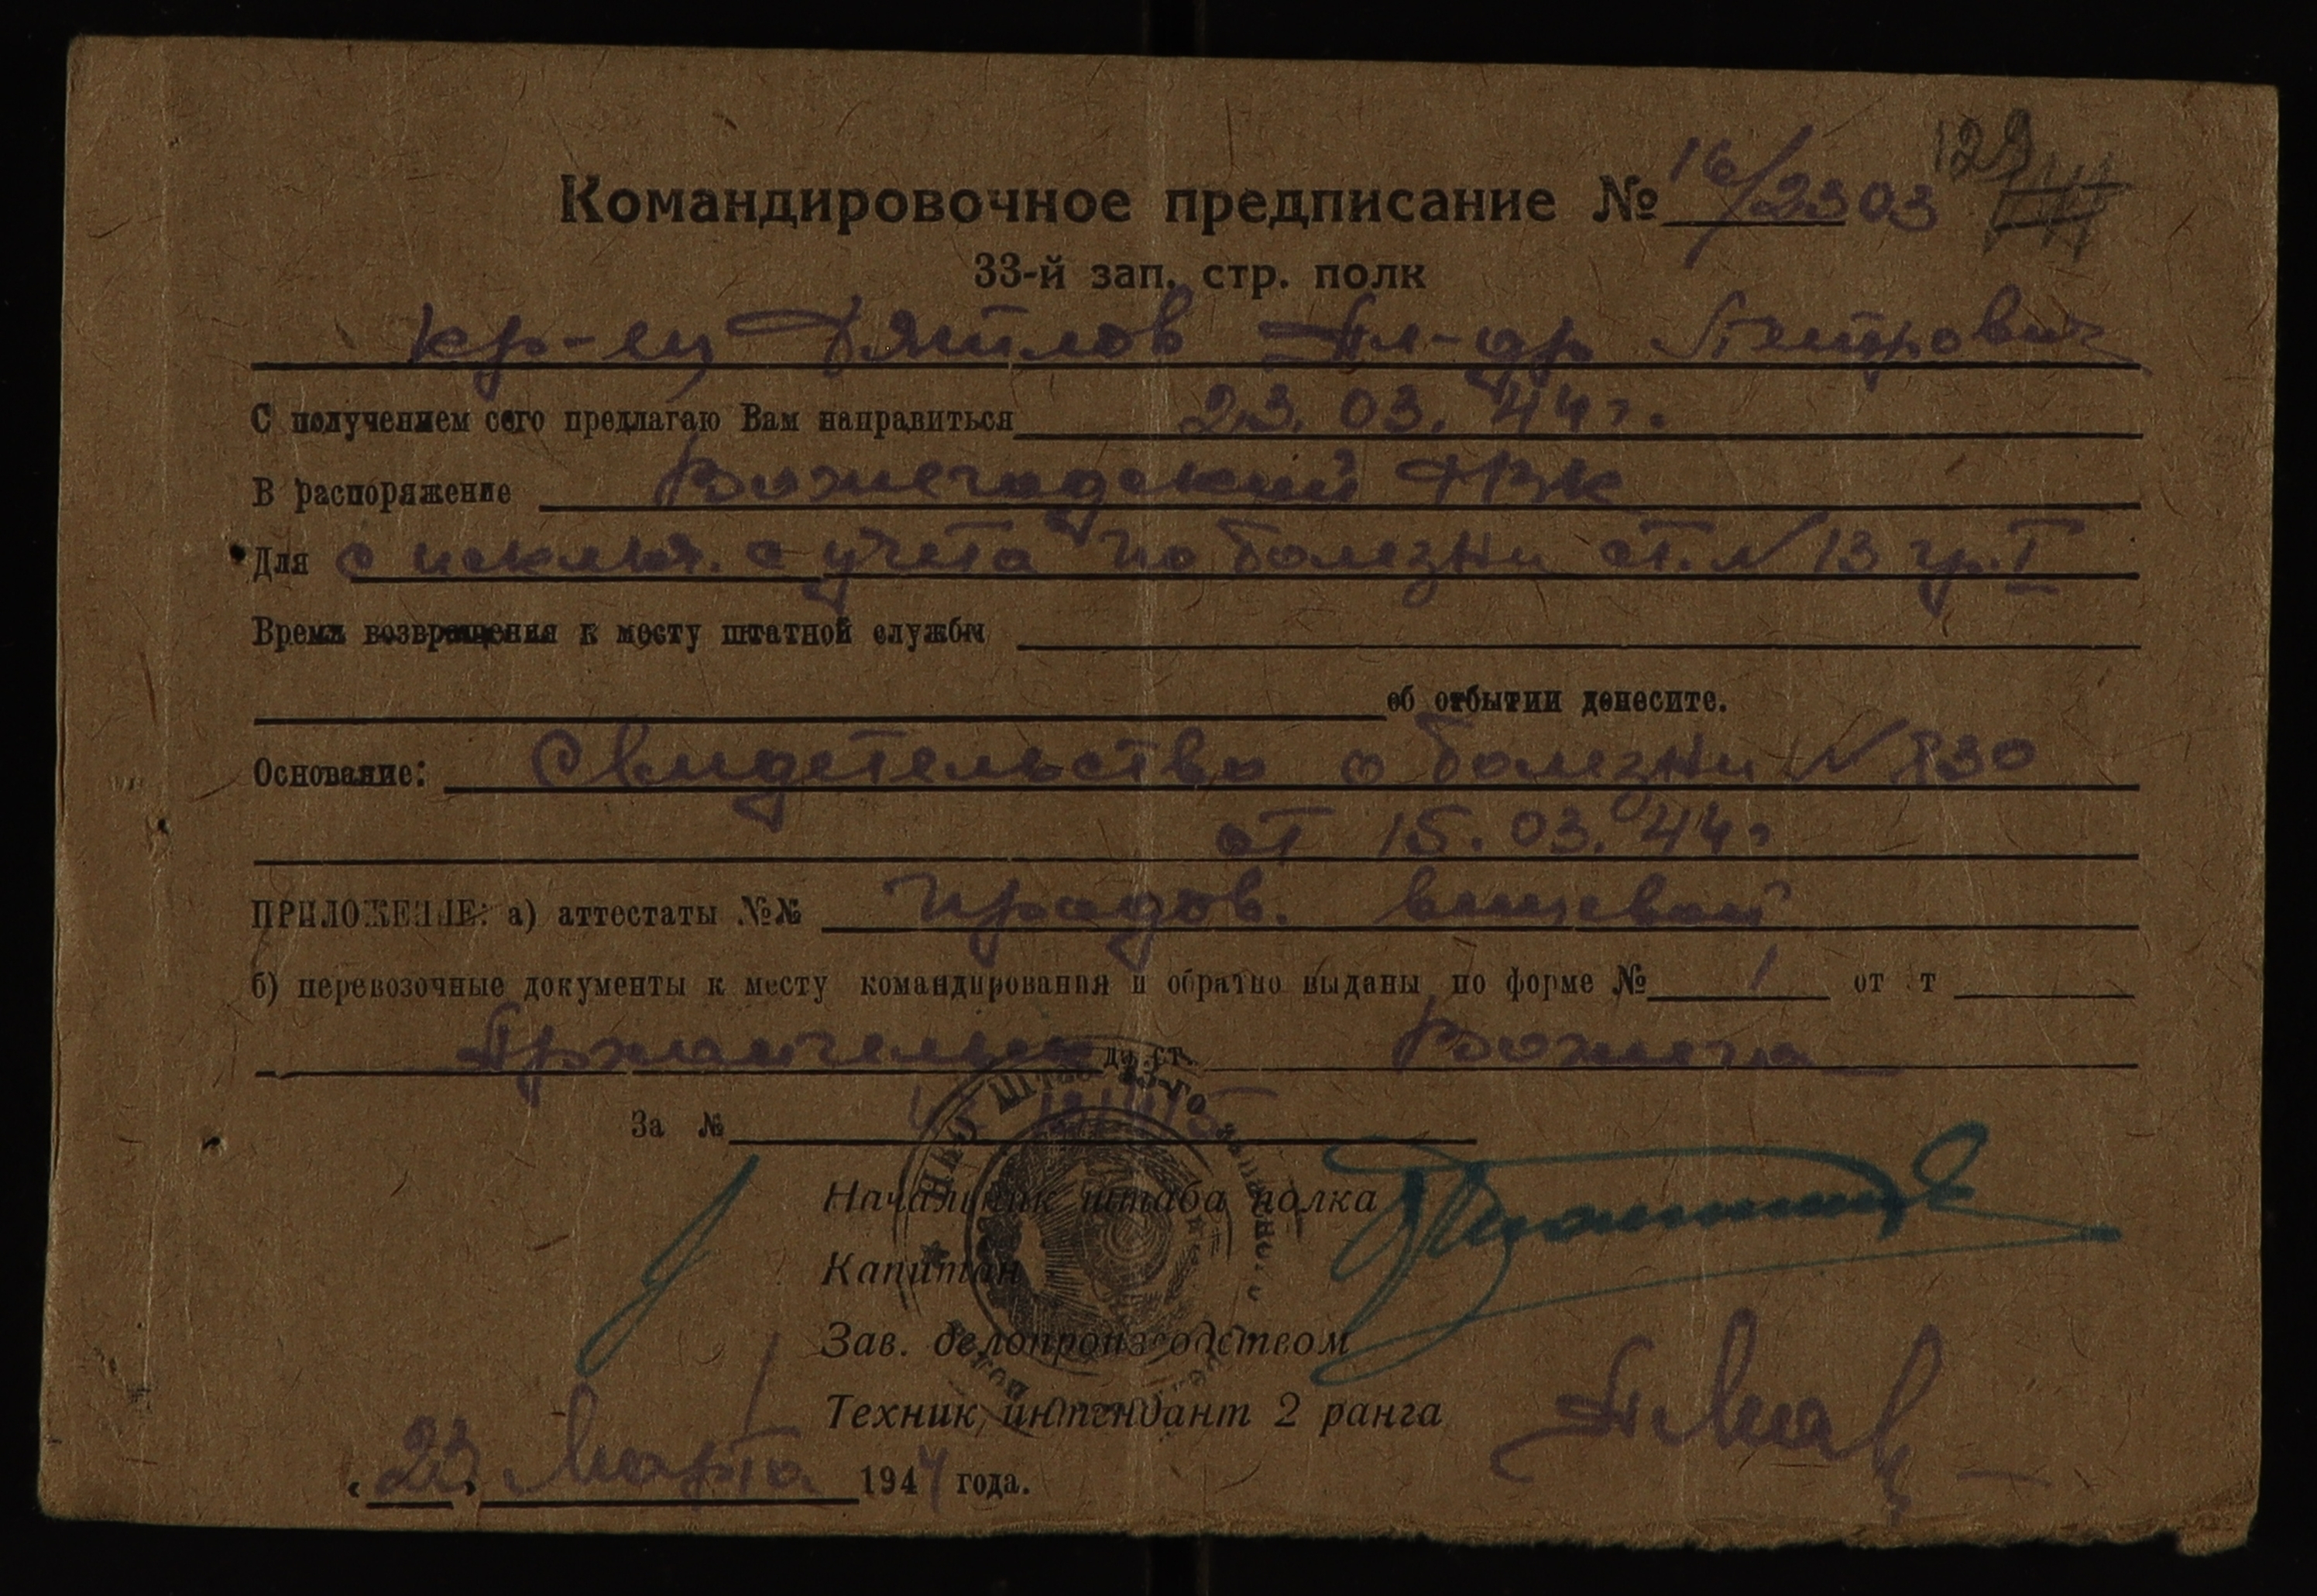 129
Командировочное предписание № 16/2303
33-й зап. стр. полк
кр-ец Дятлов Ал-др Петрович
С получением сего предлагаю Вам направиться 23. 03. 44 г.
В распоряжение Вожегодский РВК
Для с исключ. с учета по болезни ст. N 13 гр. I
Время возвращения к месту штатной службы
об отбытии донесите.
Основание: Свидетельство о болезни N 830
от 15. 03. 44 г
ПРИЛОЖЕНИЕ: а) аттестаты №№ продов. вещевой
б) перевозочные документы к месту командирования и обратно выданы по форме № 1 от т
Архангельск до ст. Вожега
За №
Начальник штаба полка
Капитан
Зав. делопроизводством
Техник интендант 2 ранга
"23" Марта 1944 года.